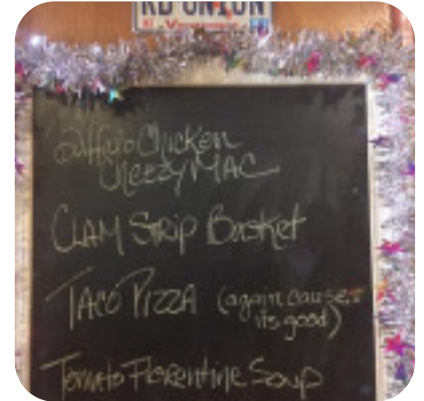 RB UNION
Buffalo Chicken
Cheezy MAC
CLAM Strip Basket
TACO PIZZA (again cause
its good)
Tomato Florentine Soup